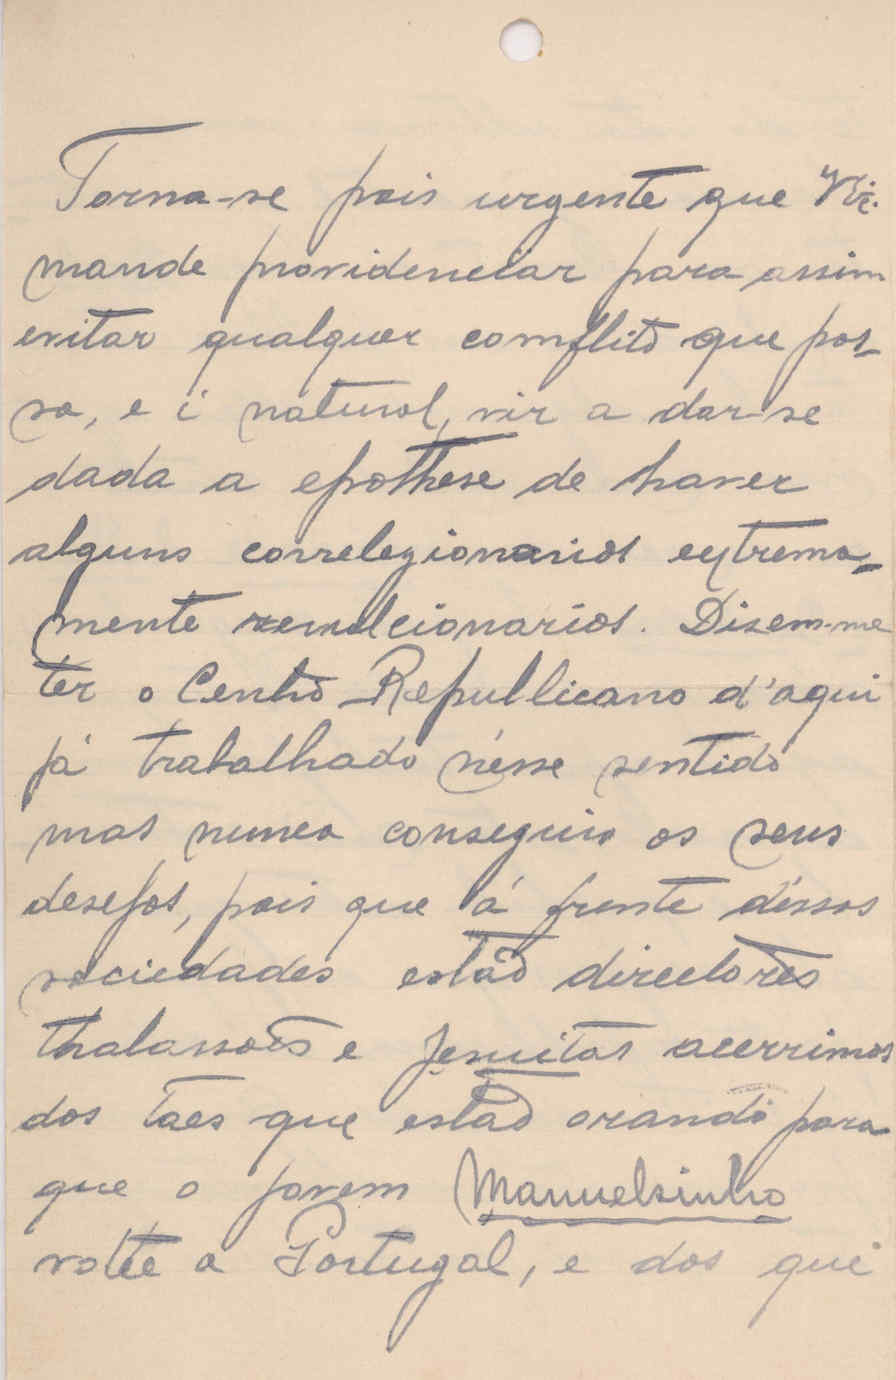 Torna-se pois urgente que V.Ex.
mande providenciar para assim
evitar qualquer comflito que pos-
sa, e é natural, vir a dar-se
dada a epothese de haver
alguns correlegionarios extrema-
mente revulcionarios. Dizem-me
ter o Centro Republicano d'aqui
já trabalhado n'esse sentido
mas nunca conseguio os seus
desejos, pois que á frente d'essas
sociedades estão directores
thalassões e Jesuitas acerrimos
dos taes que estão orando para
que o joven Manuelsinho
volte a Portugal, e dos que